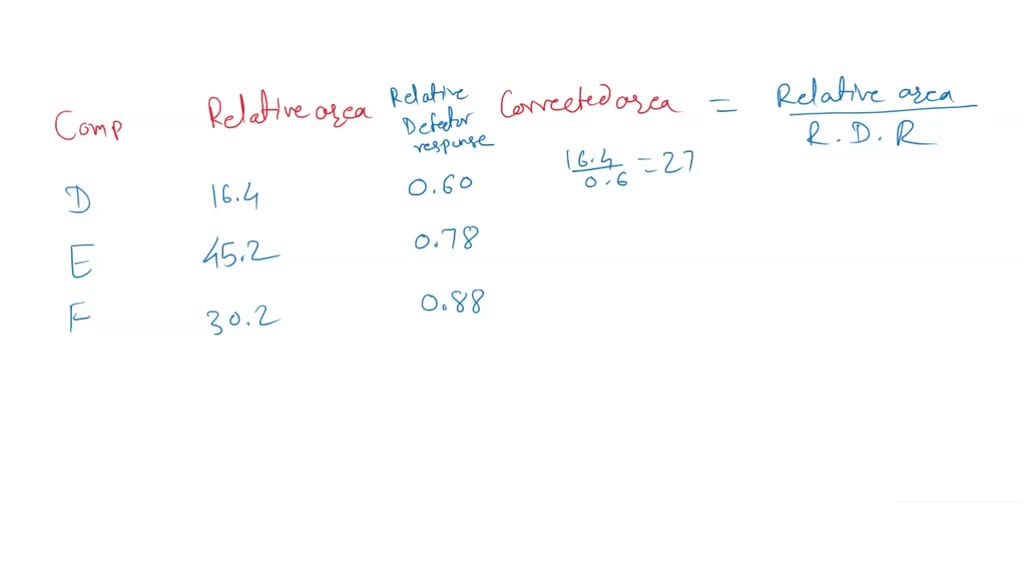 Comp Relative area Relative Detector response Corrected area = Relative area / R.D.R
D 16.4 0.60 16.4 / 0.6 = 27
E 45.2 0.78
F 30.2 0.88